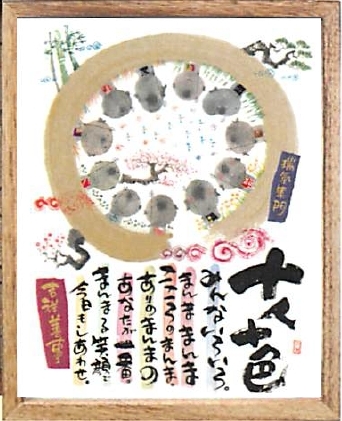 十人十色
みんないろいろ。
まんままんま
こころのまんま。
ありのまんまの
あなたが一番。
まんまる笑顔で
今日もしあわせ。